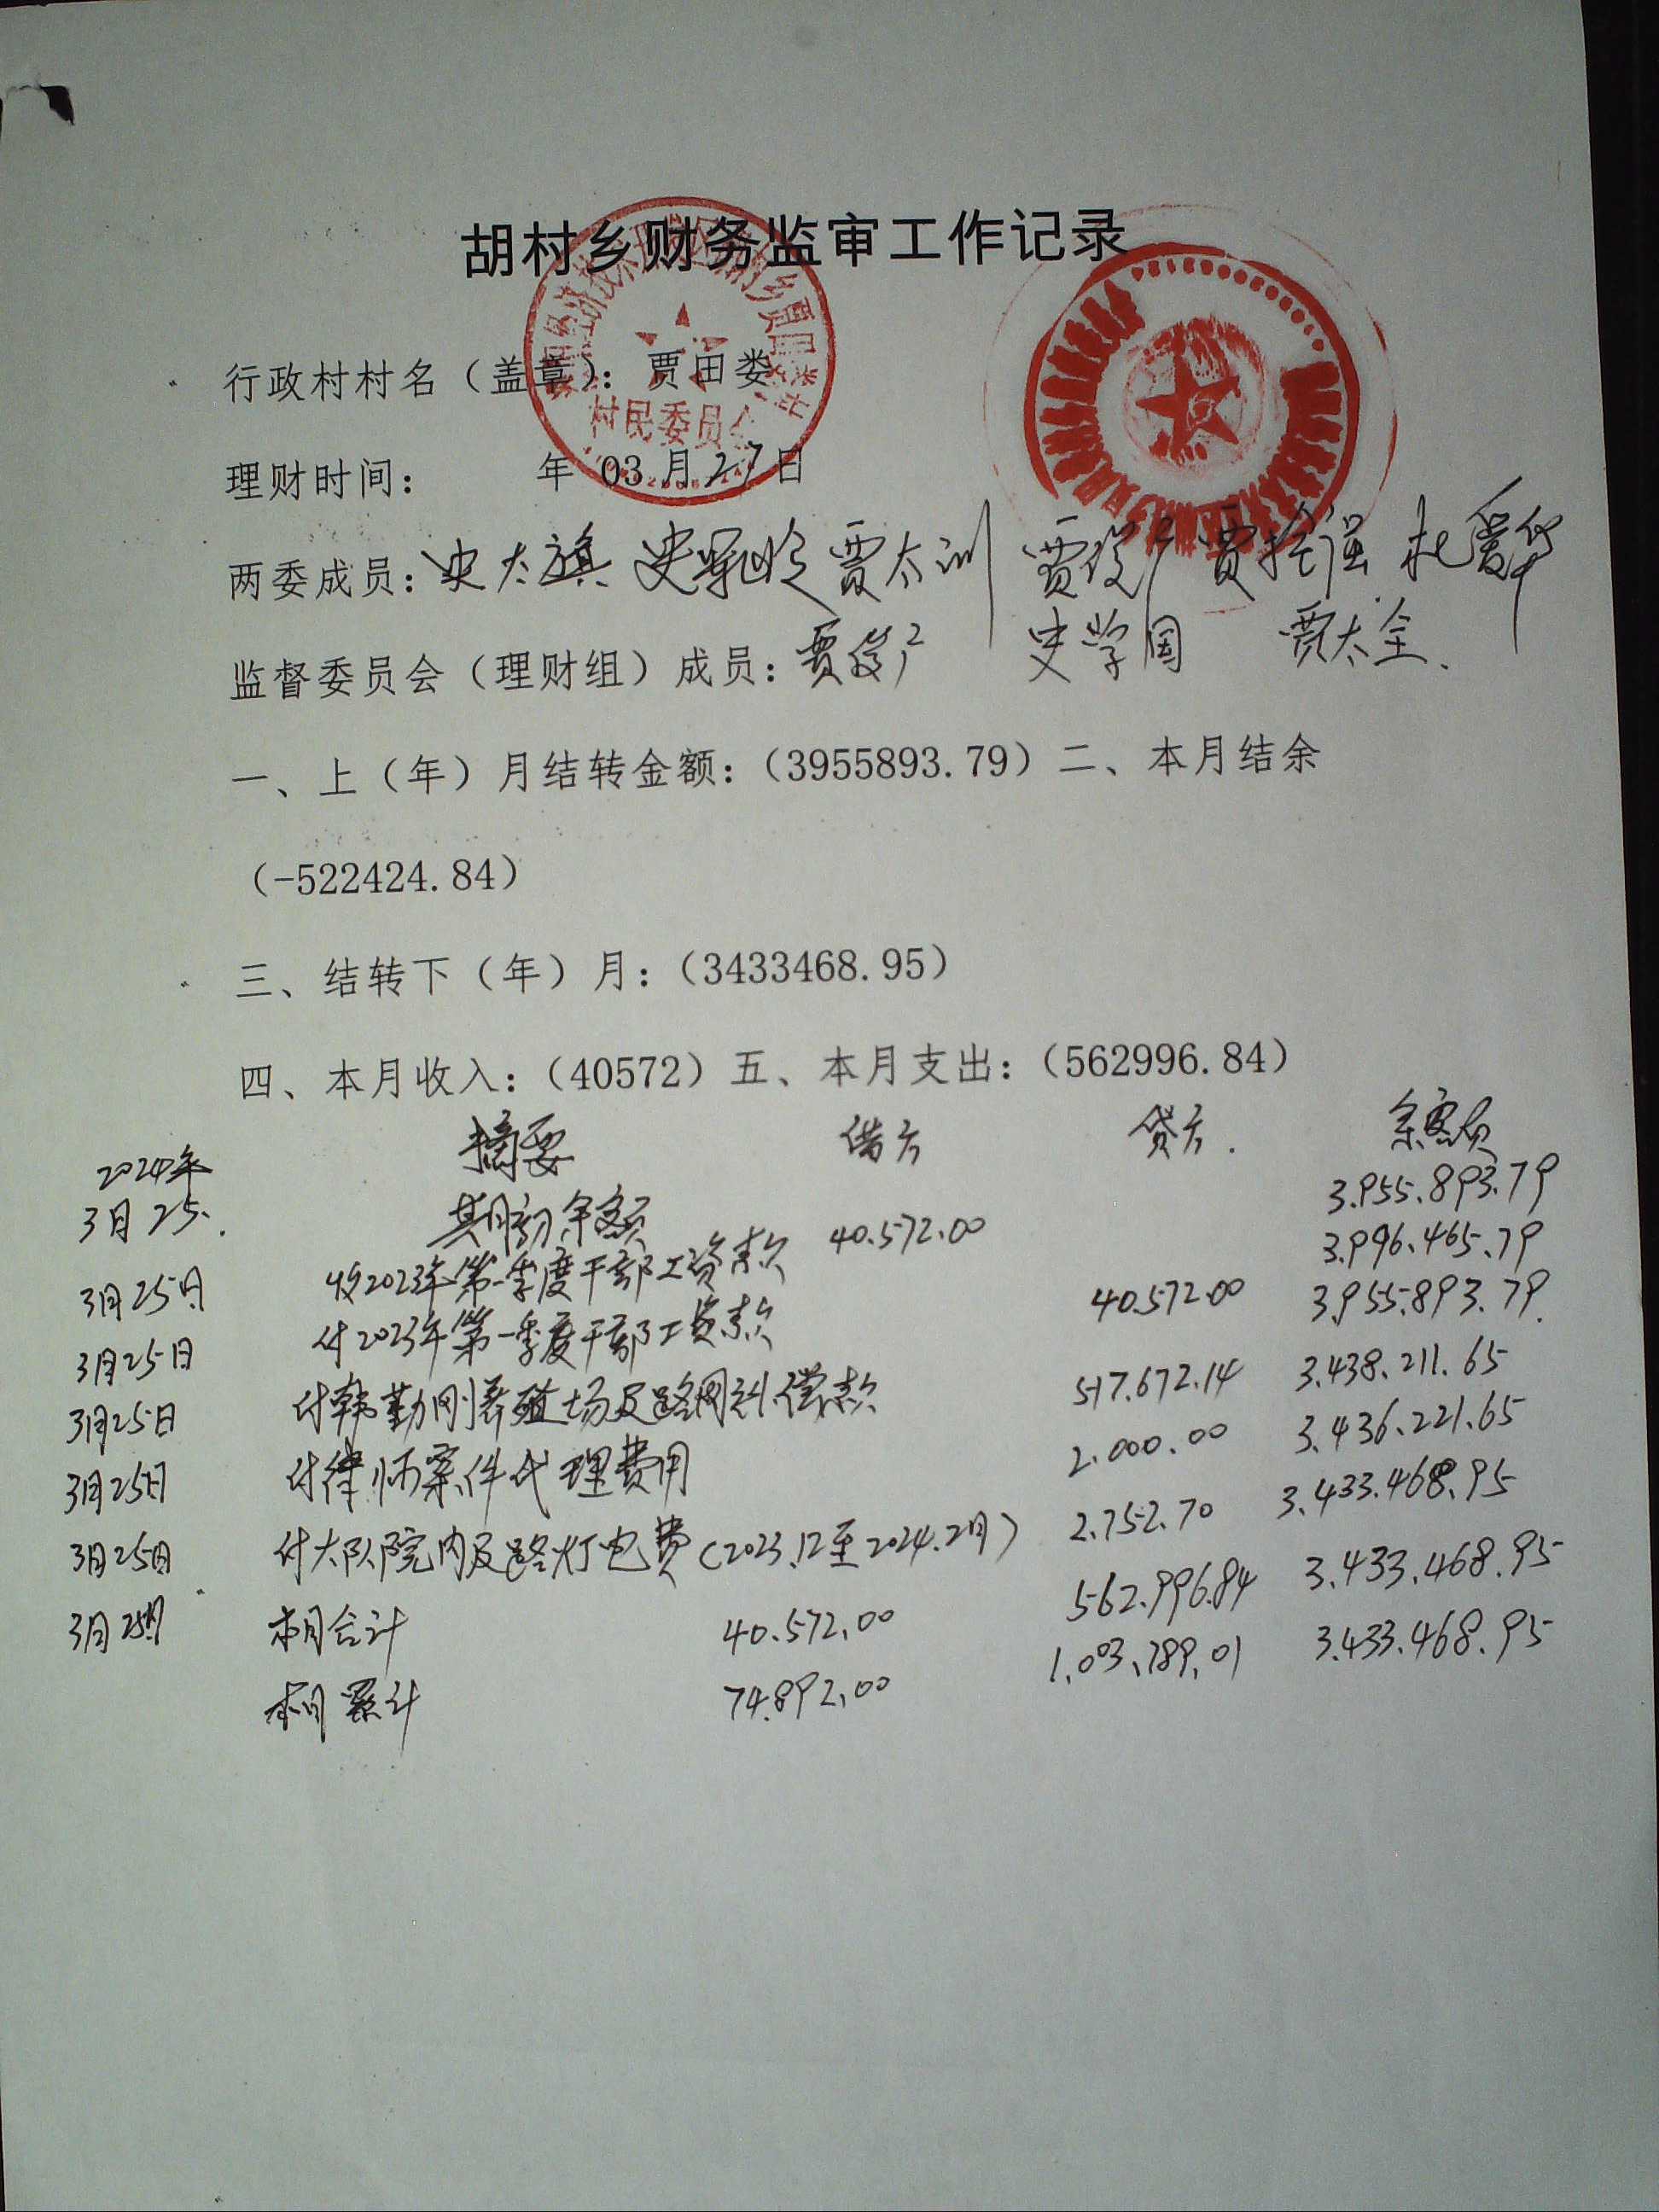 胡村乡财务监审工作记录
行政村村名（盖章）：贾田娄
村民委员会
理财时间： 年 03 月 27 日
两委成员：史太旗 贾太训 贾俊广 贾拴强 杜爱华
监督委员会（理财组）成员：贾俊广 史学国 贾太全
一、上（年）月结转金额：（3955893.79）二、本月结余
（-522424.84）
三、结转下（年）月：（3433468.95）
四、本月收入：（40572）五、本月支出：（562996.84）
2024年 摘要 借方 贷方 余额
3月25. 期初余额 3.955.893.79
3月25日 收2023年第一季度干部工资款 40.572.00 3.996.465.79
3月25日 付2023年第一季度干部工资款 40.572.00 3.955.893.79
3月25日 付韩勤刚养殖场及路网补偿款 517.672.14 3.438.211.65
3月25日 付律师案件代理费用 2.000.00 3.436.221.65
3月25日 付大队院内及路灯电费（2023.12至2024.2月） 2.752.70 3.433.468.95
3月25日 本月合计 40.572.00 562.996.84 3.433.468.95
本月累计 74.892.00 1.003.789.01 3.433.468.95